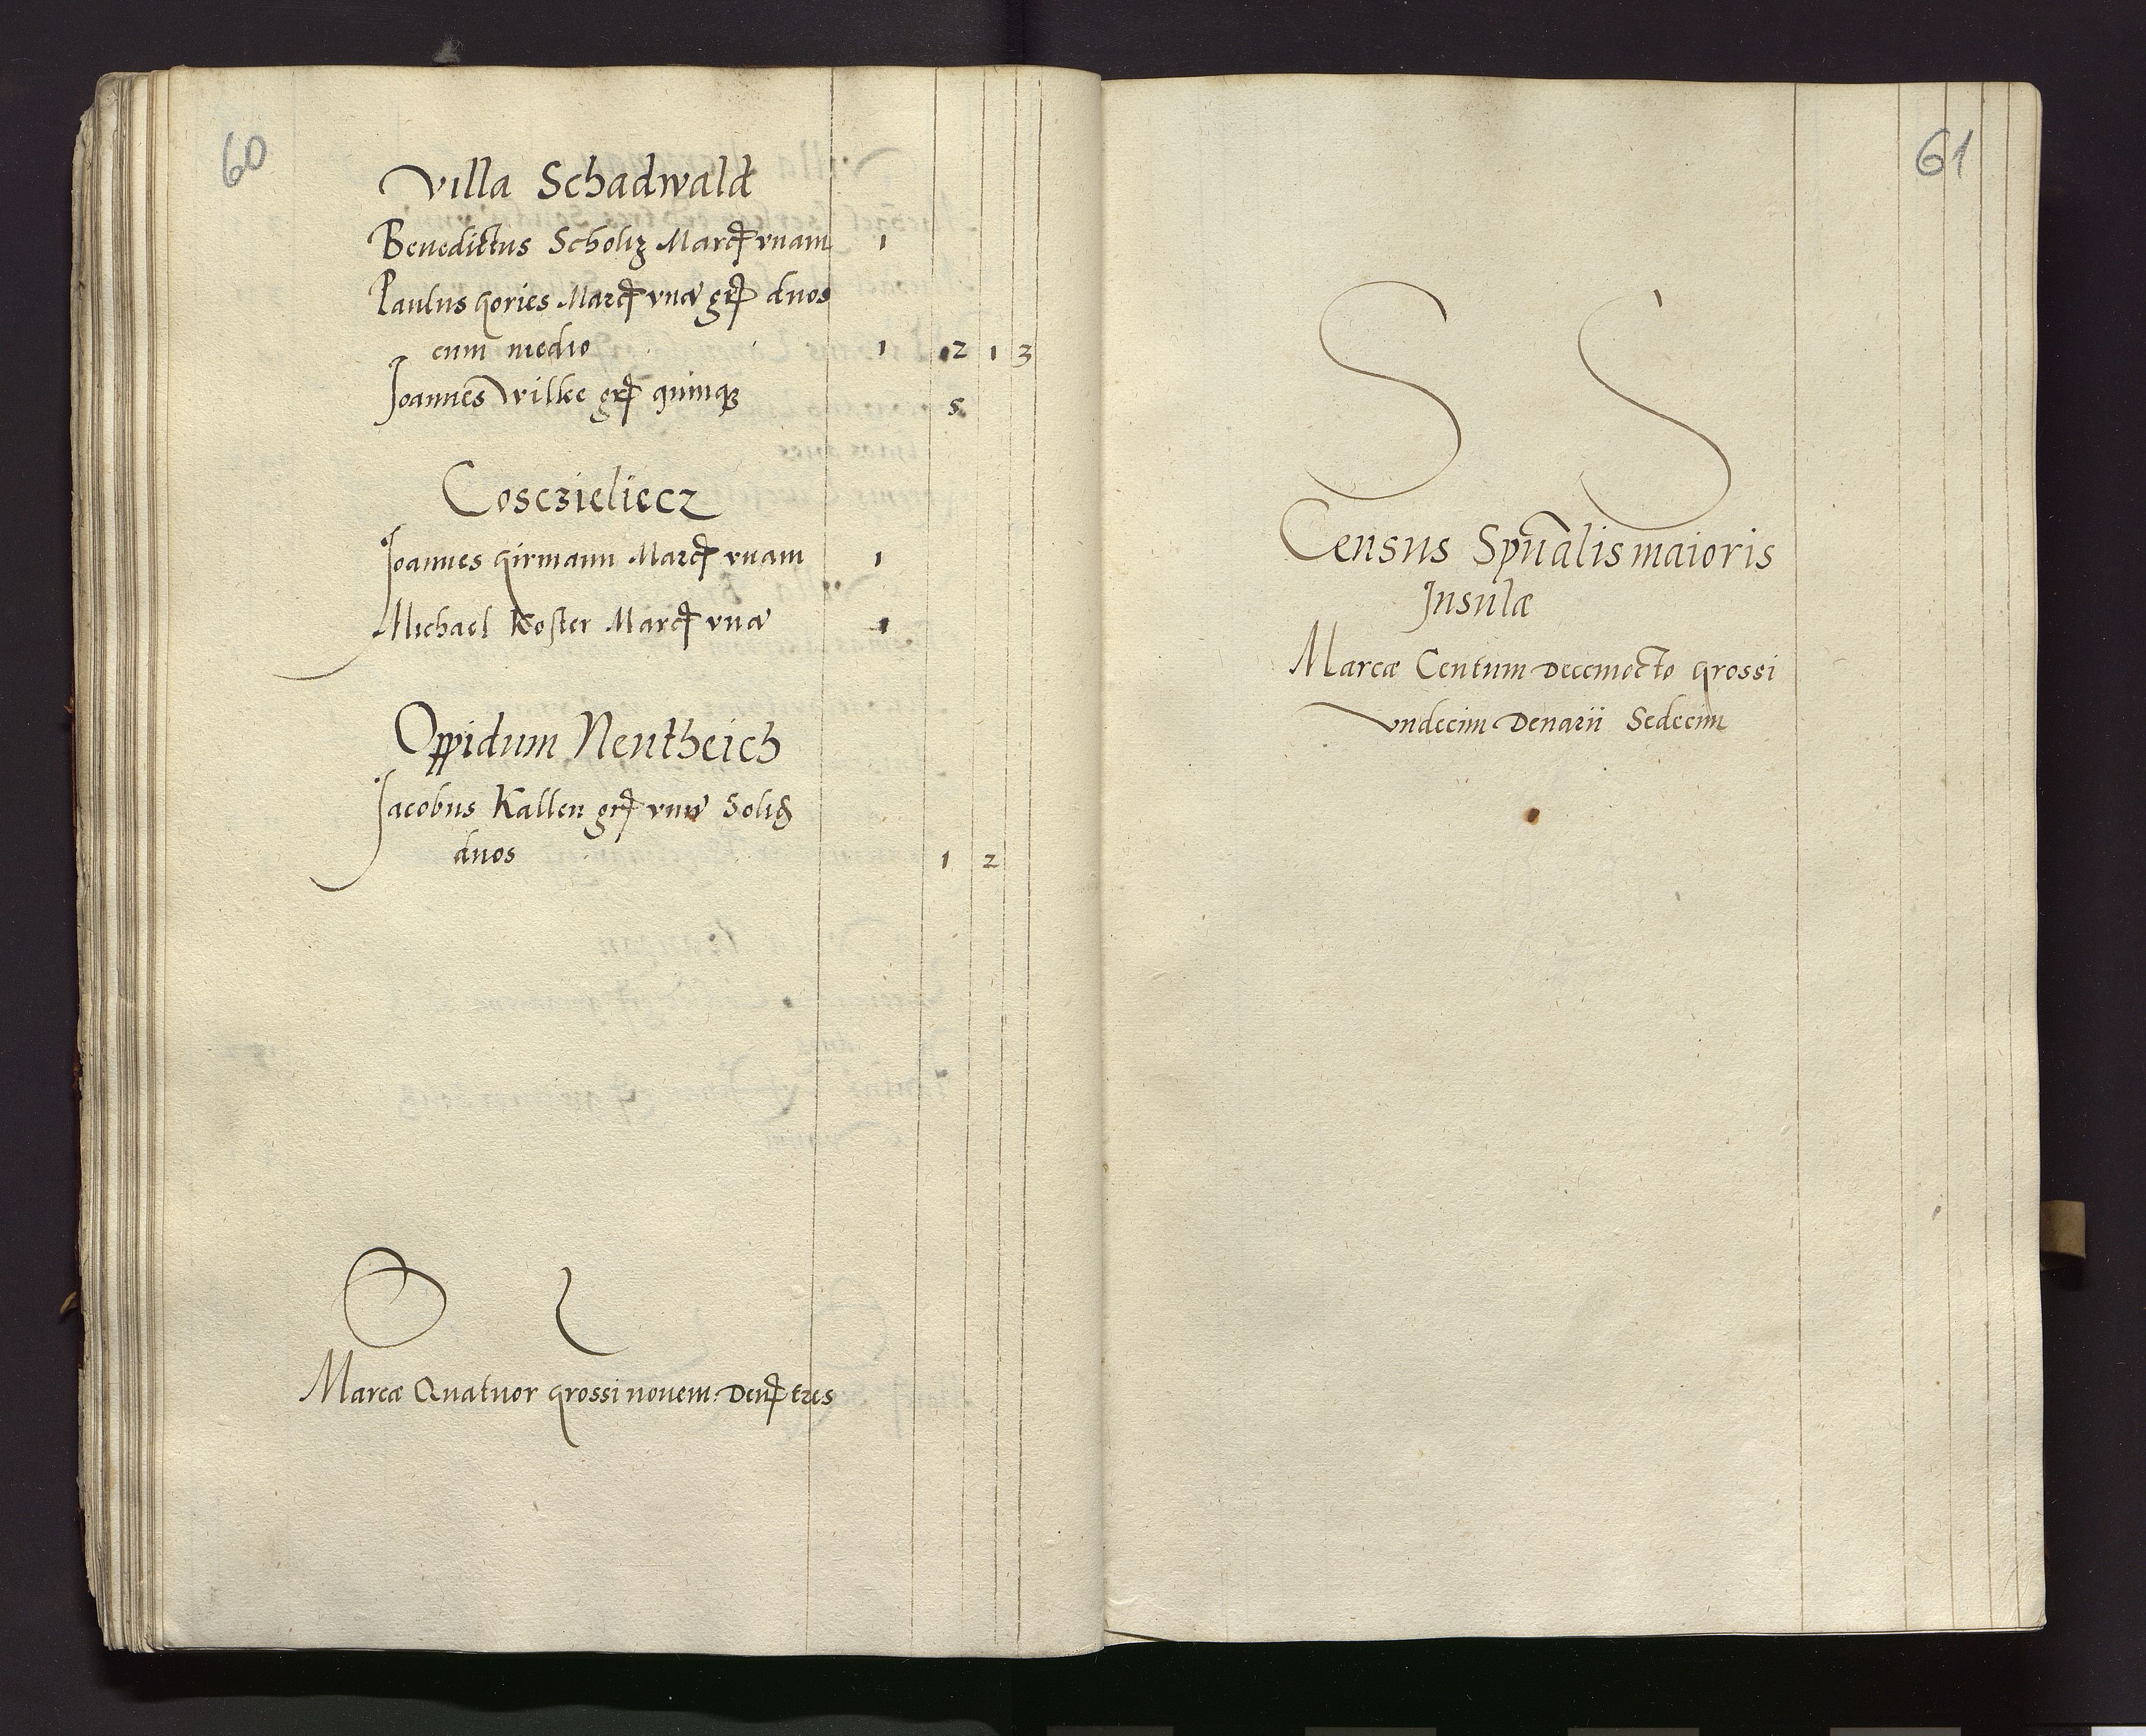 60
Villa Schadwald
Benedictus Scholtz Marcꝭ vnam 1
Paulus gories Marcꝭ vnā grꝭ duos
cum medio 1 2 1 3
Joannes Wilke grꝭ quinqꝫ 5
Cosczieliecz
Joannes girmann Marcꝭ vnam 1
Michael Koster Marcꝭ vnā 1
Oppidum Neutheich
Jacobus Kallen grꝭ vnū Solid
duos 1 2
Marcæ Quatuor grossi nouem. Denꝭ tres
61
S S
Census Spūalis maioris
Insulæ
Marcæ Centum Decemocto grossi
Vndecim Denarii Sedecim